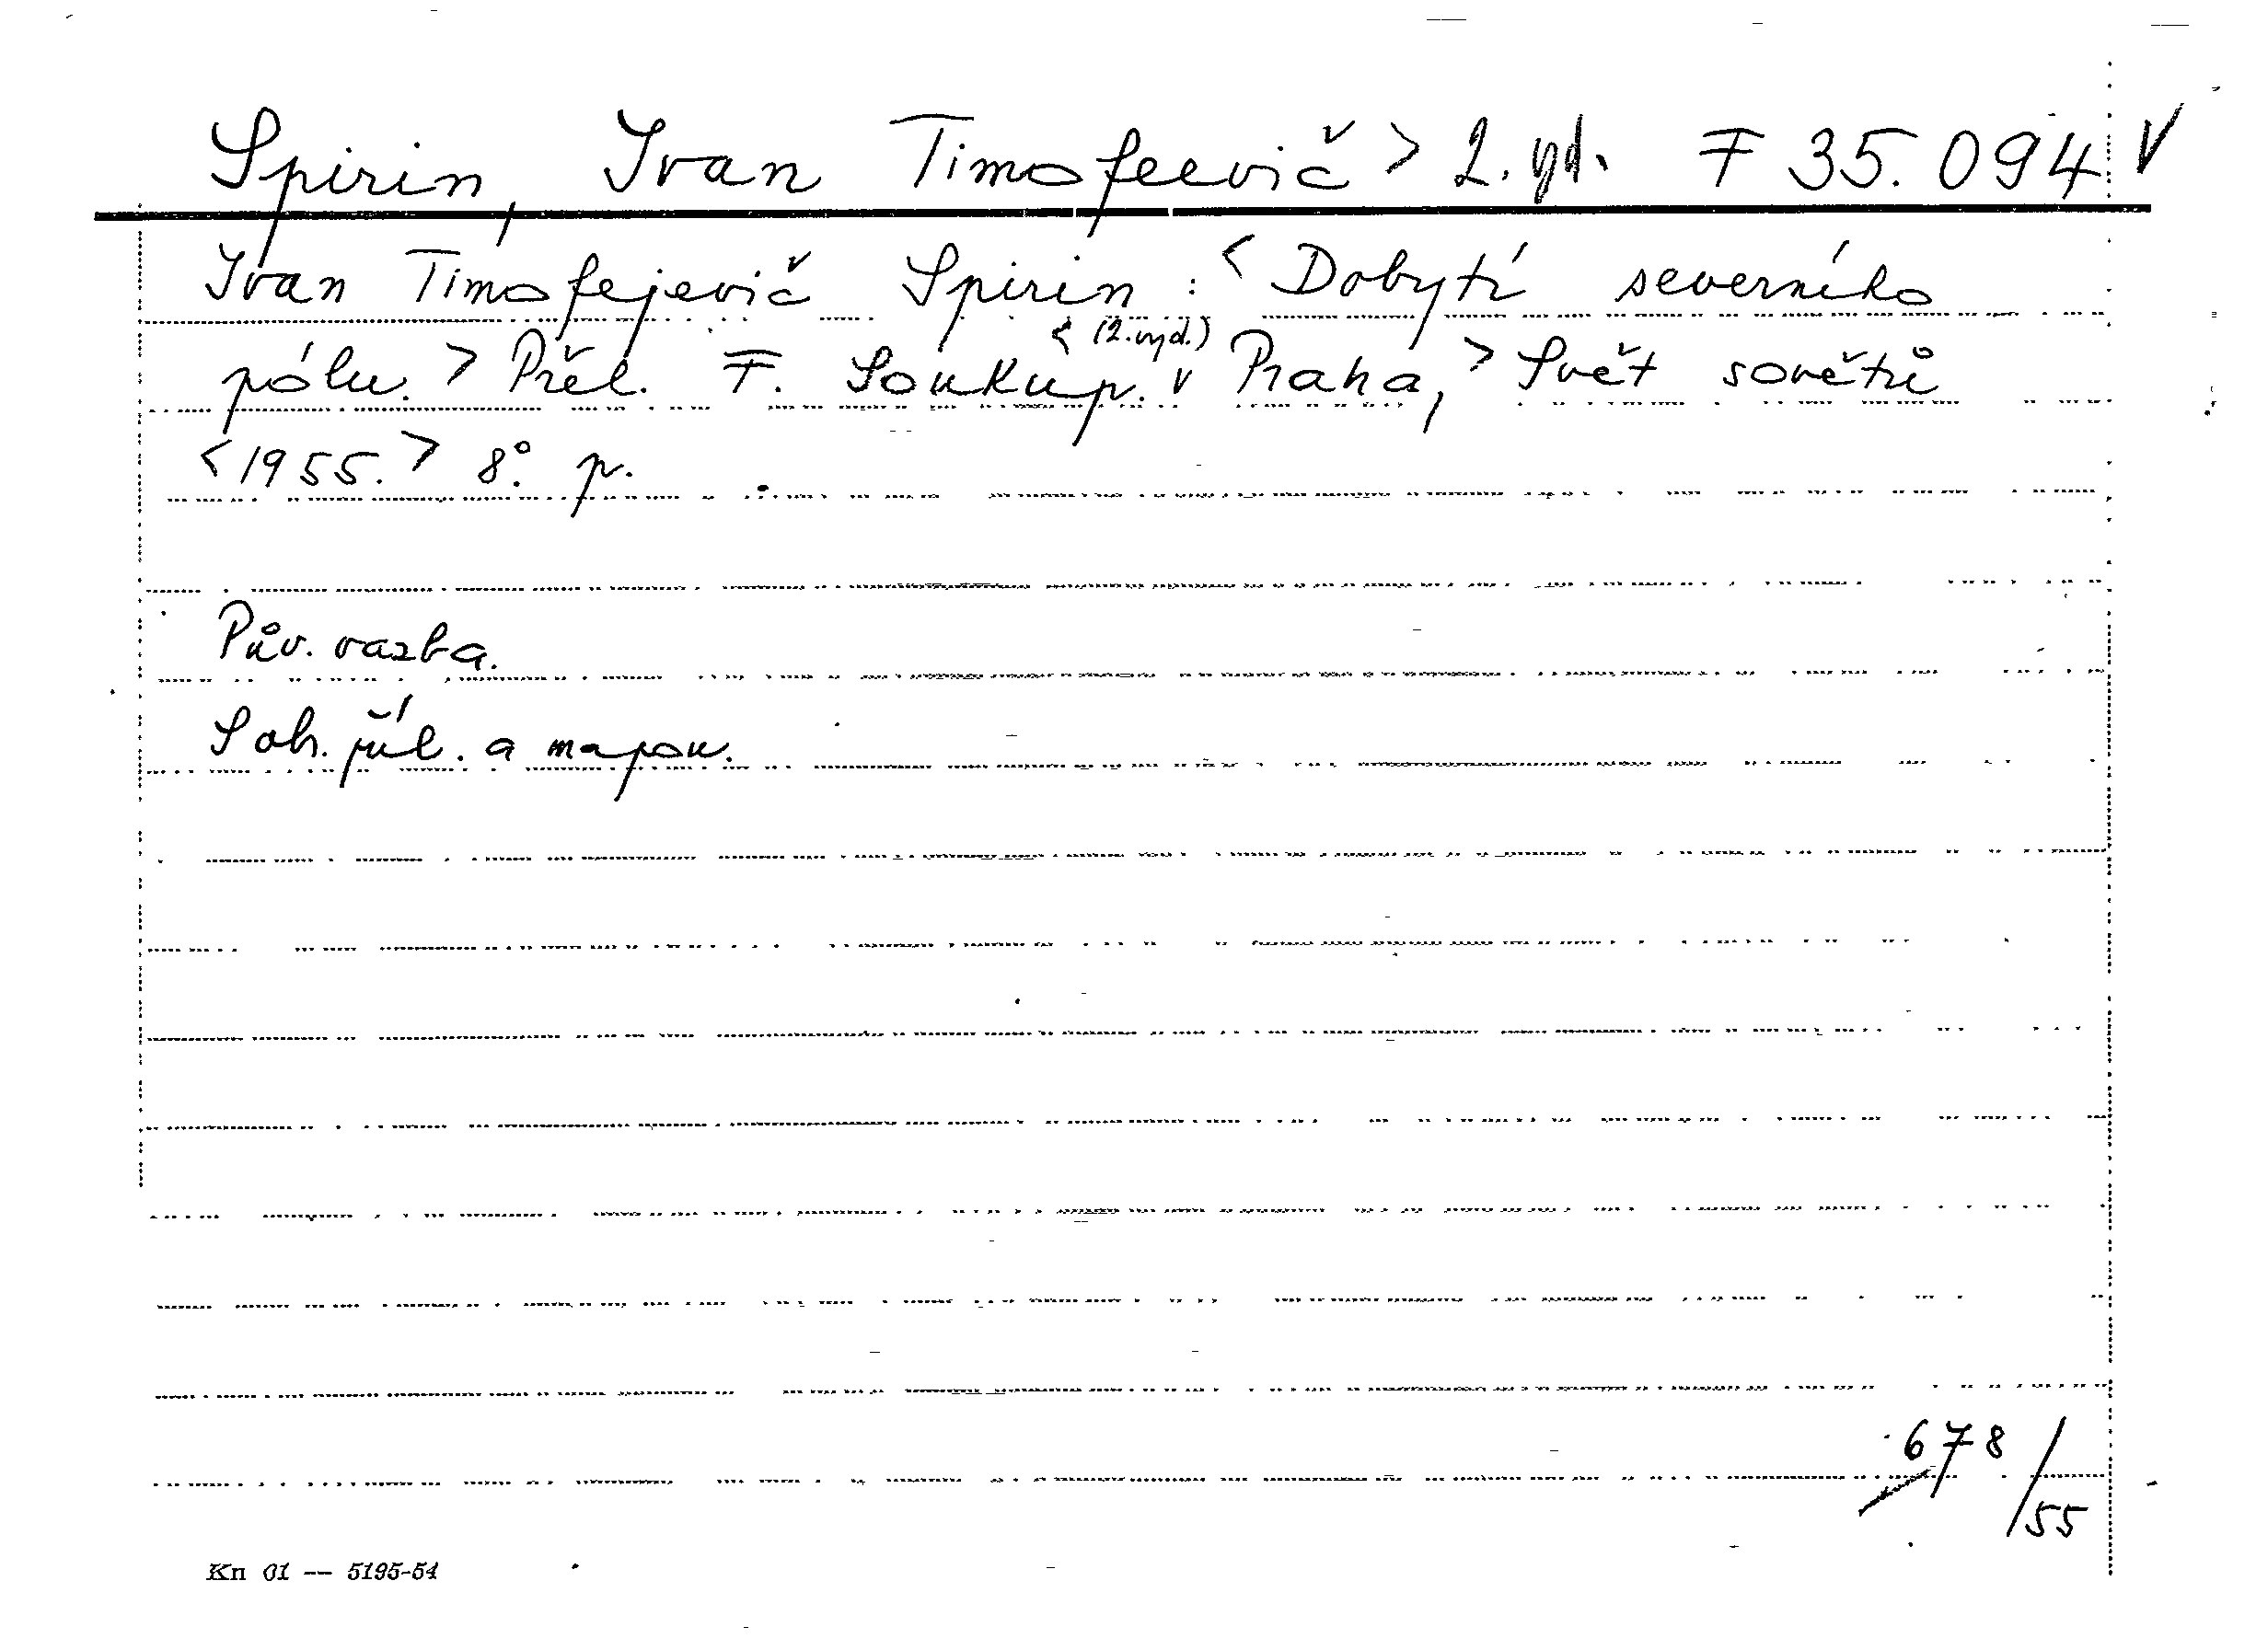 Spirin, Ivan Timofeevič > 2. vyd. F 35.094 V
Ivan Timofejevič Spirin : < Dobytí severního
< (2. vyd.)
pólu. > Přel. F. Soukup. v Praha, > Svět sovětů
< 1955. > 8°. p.
Pův. vazba.
S obr. příl. a mapou.
678/55
Kn 01 -- 5195-54